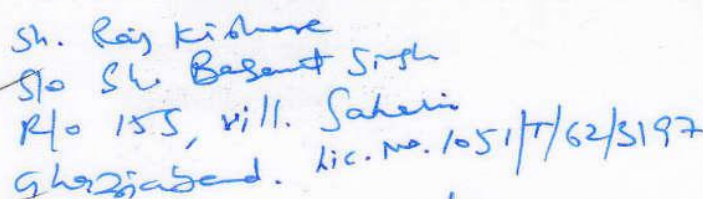 Sh. Raj Kishore
S/o Sh. Basant Singh
R/o 155, vill. Saheri
Ghaziabad. Lic. No. 1051/T/62/3197